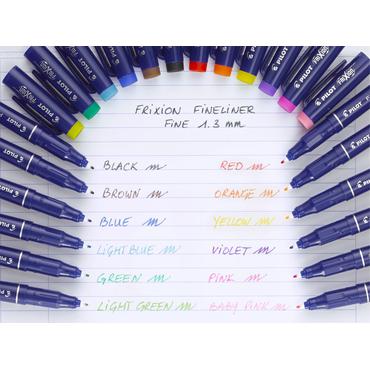 FRIXION FINELINER
FINE 1.3 mm
BLACK
RED
BROWN
ORANGE
BLUE
YELLOW
LIGHT BLUE
VIOLET
GREEN
PINK
LIGHT GREEN
BABY PINK
PILOT
PILOT
PILOT
PILOT
PILOT
PILOT
FRIXION
PILOT
FRIXION
PILOT